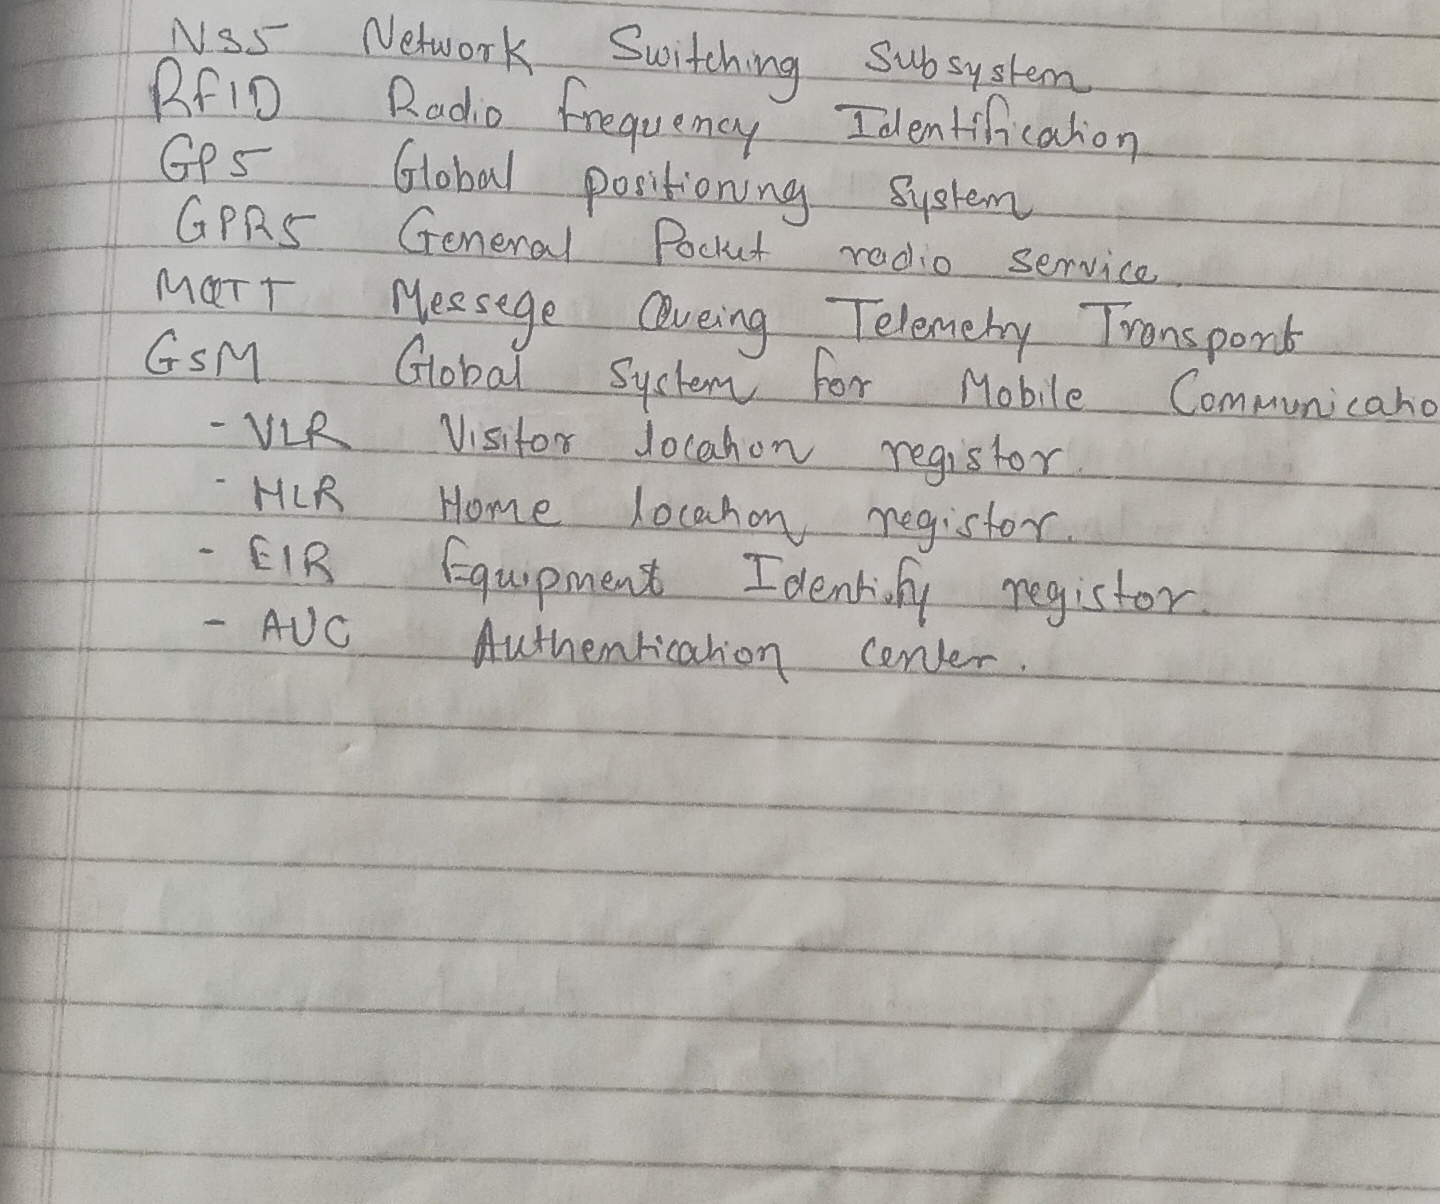 NSS Network Switching Subsystem
RFID Radio frequency Identification
GPS Global positioning System
GPRS General Pocket radio service.
MQTT Messege Queing Telemetry Transport
GSM Global System for Mobile Communicatio
- VLR Visitor location registor.
- HLR Home location registor.
- EIR Equipment Identify registor.
- AUC Authentication center.